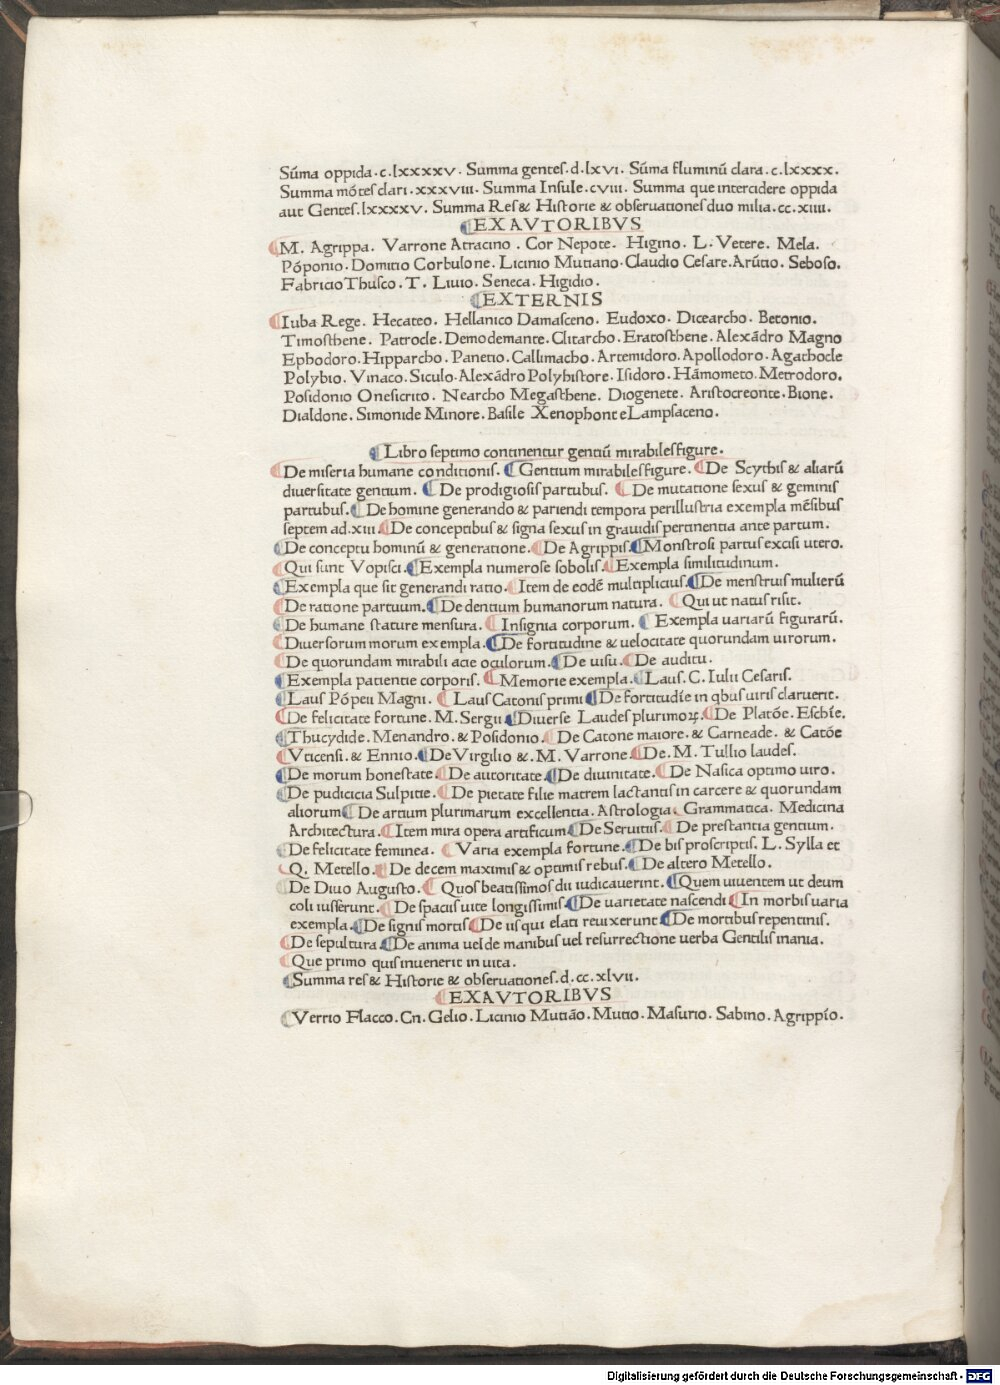 Sūma oppida.c.lxxxxv. Summa genteſ.d.lxvi. Sūma fluminū clara.c.lxxxx.
Summa mōteſ clari.xxxviii. Summa Inſule.cviii. Summa que intercidere oppida
aut Genteſ.lxxxxv. Summa Reſ & Hiſtorie & obſeruationeſ duo milia.cc.xiiii.
EX AVTORIBVS
M. Agrippa. Varrone Atracino. Cor Nepote. Higino. L. Vetere. Mela.
Pōponio. Domitio Corbulone. Licinio Mutiano. Claudio Ceſare. Arūtio. Seboſo.
Fabricio Thuſco. T. Liuio. Seneca. Higidio.
EXTERNIS
Iuba Rege. Hecateo. Hellanico Damaſceno. Eudoxo. Dicearcho. Betonio.
Timoſthene. Patrocle. Demodemante. Clitarcho. Eratoſthene. Alexādro Magno
Ephodoro. Hipparcho. Panetio. Callimacho. Artemidoro. Apollodoro. Agathocle
Polybio. Vinaco. Siculo. Alexādro Polyhiſtore. Iſidoro. Hāmometo. Metrodoro.
Poſidonio Oneſicrito. Nearcho Megaſthene. Diogenete. Ariſtocreonte. Bione.
Dialdone. Simonide Minore. Baſile Xenophonte Lampſaceno.
Libro ſeptimo continentur gentiū mirabileſ figure.
De miſeria humane conditioniſ. Gentium mirabileſ figure. De Scythiſ & aliarū
diuerſitate gentium. De prodigioſiſ partubuſ. De mutatione ſexuſ & geminiſ
partubuſ. De homine generando & pariendi tempora perilluſtria exempla mēſibuſ
ſeptem ad.xiii. De conceptibuſ & ſigna ſexuſ in grauidiſ pertinentia ante partum.
De conceptu hominū & generatione. De Agrippiſ. Monſtroſi partuſ exciſi utero.
Qui ſunt Vopiſci. Exempla numeroſe ſoboliſ. Exempla ſimilitudinum.
Exempla que ſit generandi ratio. Item de eodē multipliciuſ. De menſtruiſ mulierū
De ratione partuum. De dentium humanorum natura. Qui ut natuſ riſit.
De humane ſtature menſura. Inſignia corporum. Exempla uariarū figurarū.
Diuerſorum morum exempla. De fortitudine & uelocitate quorundam uirorum.
De quorundam mirabili acie oculorum. De uiſu. De auditu.
Exempla patientie corporiſ. Memorie exempla. Lauſ. C. Iulii Ceſariſ.
Lauſ Pōpeii Magni. Lauſ Catoniſ primi De fortitudīe in qbuſ uiriſ claruerit.
De felicitate fortune. M. Sergii Diuerſe Laudeſ plurimoꝝ. De Platōe. Eſchīe.
Thucydide. Menandro. & Poſidonio. De Catone maiore. & Carneade. & Catōe
Vticenſi. & Ennio. De Virgilio &. M. Varrone. De. M. Tullio laudeſ.
De morum honeſtate. De autoritate. De diuinitate. De Naſica optimo uiro.
De pudicicia Sulpitie. De pietate filie matrem lactantiſ in carcere & quorundam
aliorum De artium plurimarum excellentia. Aſtrologia. Grammatica. Medicina
Architectura. Item mira opera artificum De Seruitiiſ. De preſtantia gentium.
De felicitate feminea. Varia exempla fortune. De biſ proſcriptiſ. L. Sylla et
Q. Metello. De decem maximiſ & optimiſ rebuſ. De altero Metello.
De Diuo Auguſto. Quoſ beatiſſimoſ dii iudicauerint. Quem uiuentem ut deum
coli iuſſerunt. De ſpaciiſ uite longiſſimiſ De uarietate naſcendi In morbiſ uaria
exempla. De ſigniſ mortiſ De iiſ qui elati reuixerunt De mortibuſ repentiniſ.
De ſepultura De anima uel de manibuſ uel reſurrectione uerba Gentiliſ inania.
Que primo quiſ inuenerit in uita.
Summa reſ & Hiſtorie & obſeruationeſ.d.cc.xlvii.
EX AVTORIBVS
Verrio Flacco. Cn. Gelio. Licinio Mutiāo. Mutio. Maſurio. Sabino. Agrippīo.
Digitalisierung gefördert durch die Deutsche Forschungsgemeinschaft - DFG